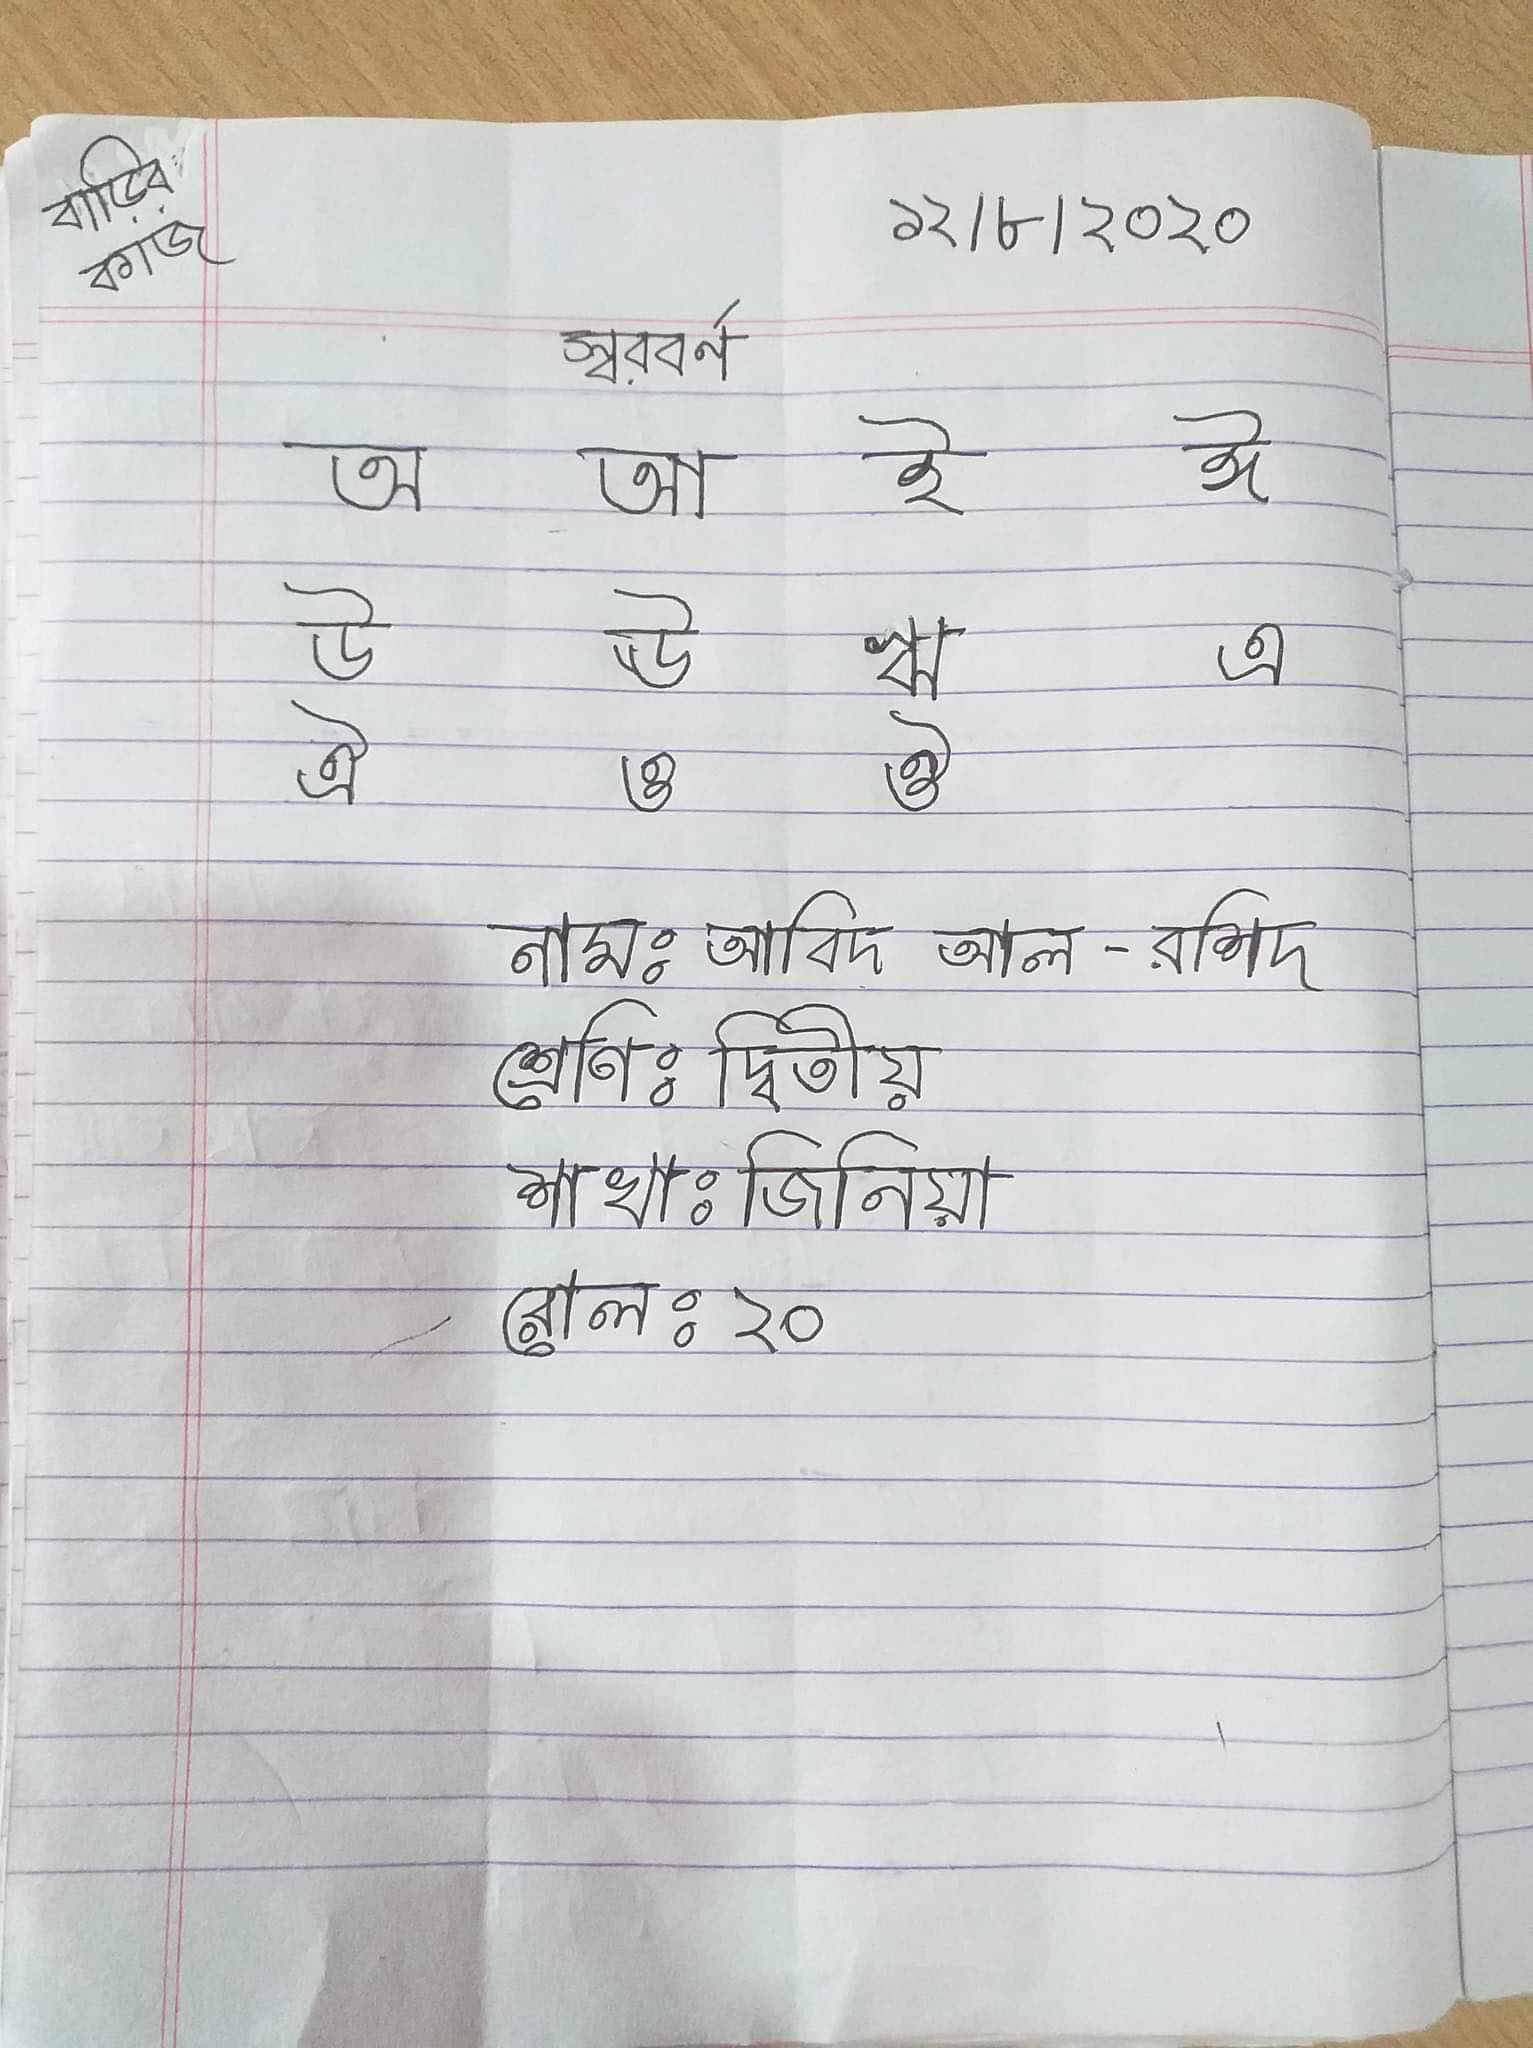 বাড়ির
কাজ
১২/৮/২০২০
স্বরবর্ন
অ আ ই ঈ
উ ঊ ঋ এ
ঐ ও ঔ
নামঃ আবিদ আল - রশিদ
শ্রেণিঃ দ্বিতীয়
শাখাঃ জিনিয়া
রোলঃ ২০